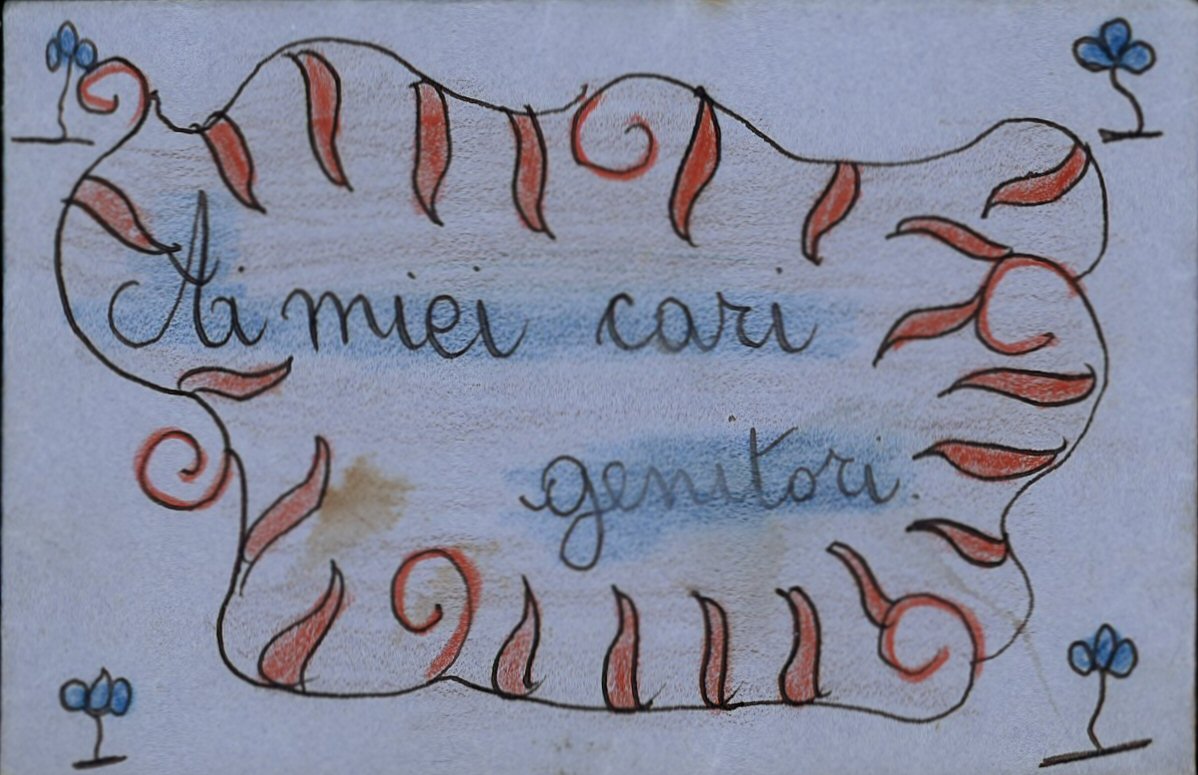 Ai miei cari
genitori.